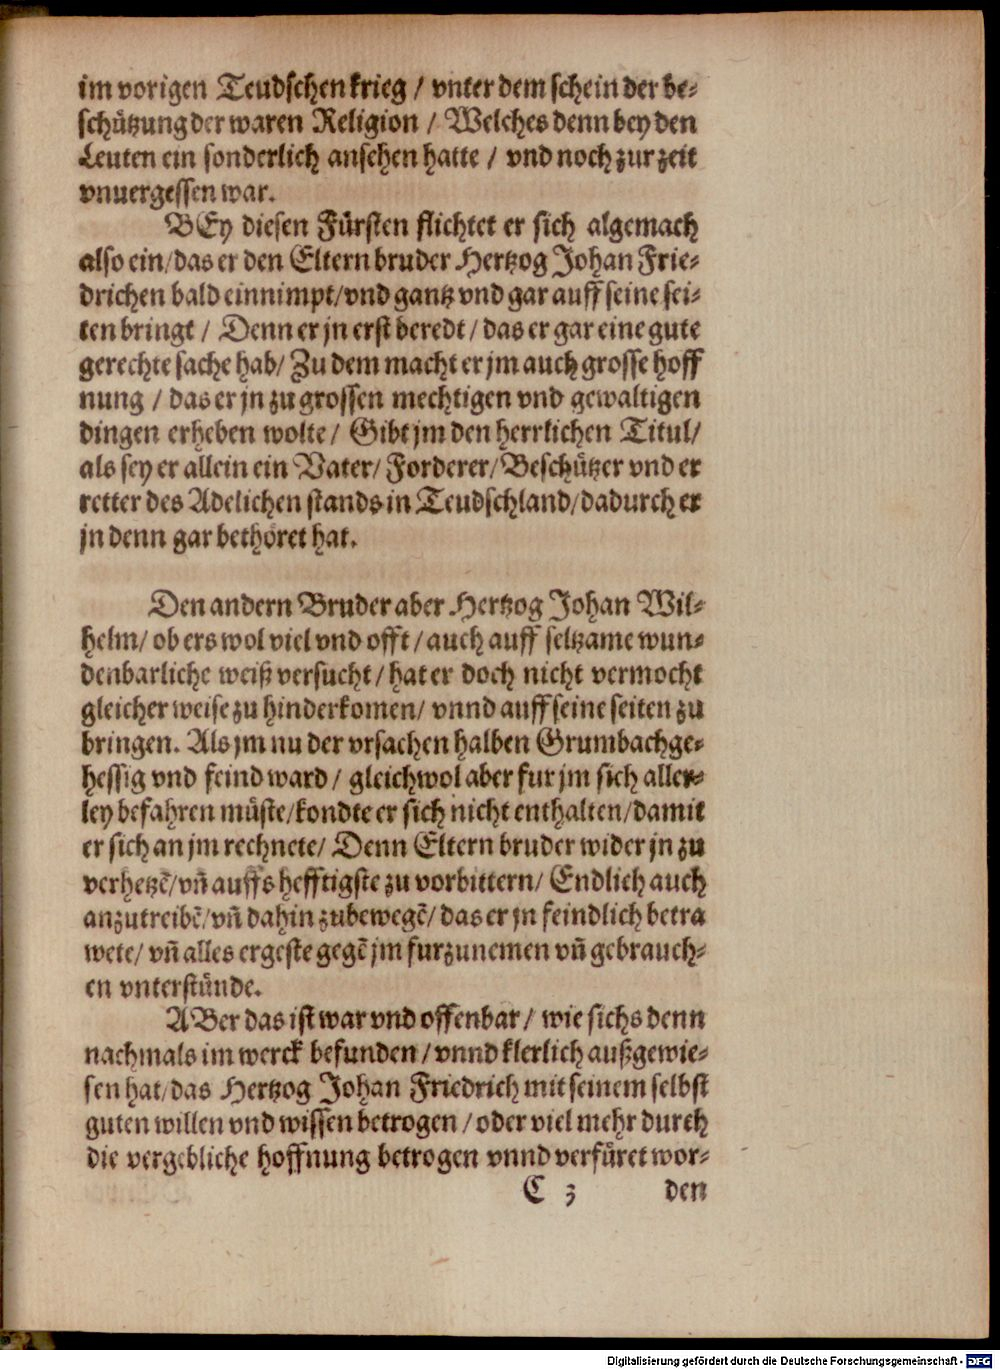 im vorigen Teudschen krieg / vnter dem schein der be-
schützung der waren Religion / Welches denn bey den
Leuten ein sonderlich ansehen hatte / vnd noch zur zeit
vnuergessen war.
BEy diesen Fürsten flichtet er sich algemach
also ein/das er den Eltern bruder Hertzog Johan Frie-
drichen bald einnimpt/vnd gantz vnd gar auff seine sei-
ten bringt / Denn er jn erst beredt / das er gar eine gute
gerechte sache hab/ Zu dem macht er jm auch grosse hoff
nung / das er jn zu grossen mechtigen vnd gewaltigen
dingen erheben wolte / Gibt jm den herrlichen Titul/
als sey er allein ein Vater/ Forderer/ Beschützer vnd er
retter des Adelichen stands in Teudschland/dadurch er
jn denn gar bethöret hat.
Den andern Bruder aber Hertzog Johan Wil-
helm/ ob ers wol viel vnd offt / auch auff seltzame wun-
denbarliche weiß versucht / hat er doch nicht vermocht
gleicher weise zu hinderkomen/ vnnd auff seine seiten zu
bringen. Als jm nu der vrsachen halben Grumbach ge-
hessig vnd feind ward / gleichwol aber fur jm sich aller-
ley befahren müste/kondte er sich nicht enthalten/damit
er sich an jm rechnete/ Denn Eltern bruder wider jn zu
verhetzẽ/vñ auffs hefftigste zu vorbittern/ Endlich auch
anzutreibẽ/vñ dahin zubewegẽ/ das er jn feindlich betra
wete/ vñ alles ergeste gegẽ jm furzunemen vñ gebrauch-
en vnterstünde.
ABer das ist war vnd offenbar / wie sichs denn
nachmals im werck befunden / vnnd klerlich außgewie-
sen hat/das Hertzog Johan Friedrich mit seinem selbst
guten willen vnd wissen betrogen / oder viel mehr durch
die vergebliche hoffnung betrogen vnnd verfüret wor-
C 3 den
Digitalisierung gefördert durch die Deutsche Forschungsgemeinschaft - DFG